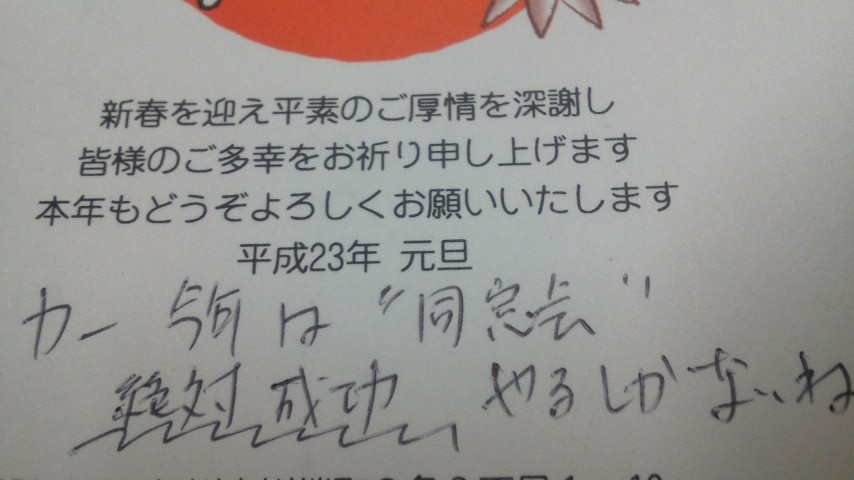 新春を迎え平素のご厚情を深謝し
皆様のご多幸をお祈り申し上げます
本年もどうぞよろしくお願いいたします
平成23年 元旦
カー 今年は“同窓会”
絶対成功 やるしかないね